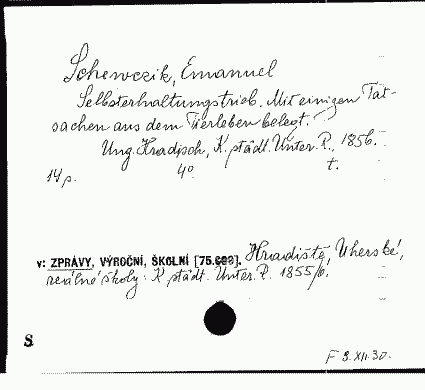 Schewczik, Emanuel
Selbsterhaltungstrieb. Mit einigen Tat-
sachen aus dem Tierleben belegt.
Ung. Hradisch, K. städt. Unter. R., 1856.
14 p. 4° t.
v: ZPRÁVY, VÝROČNÍ, ŠKOLNÍ [75.693]. Hradiště, Uherské,
reálné školy: K. städt. Unter. R. 1855/6.
S
F 9.XII.30.